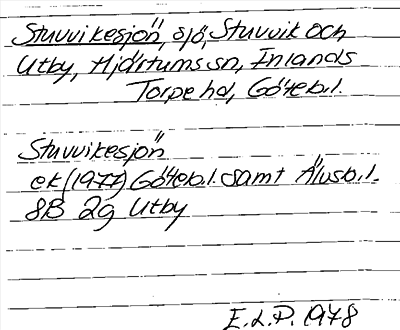 Stuvvikesjön, sjö, Stuvvik och
Utby, Hjärtums sn, Inlands
Torpe hd, Göteb.l.
Stuvvikesjön
ek (1977) Göteb.l. samt Älvsb.l.
8B 2g Utby
E.L.P. 1978